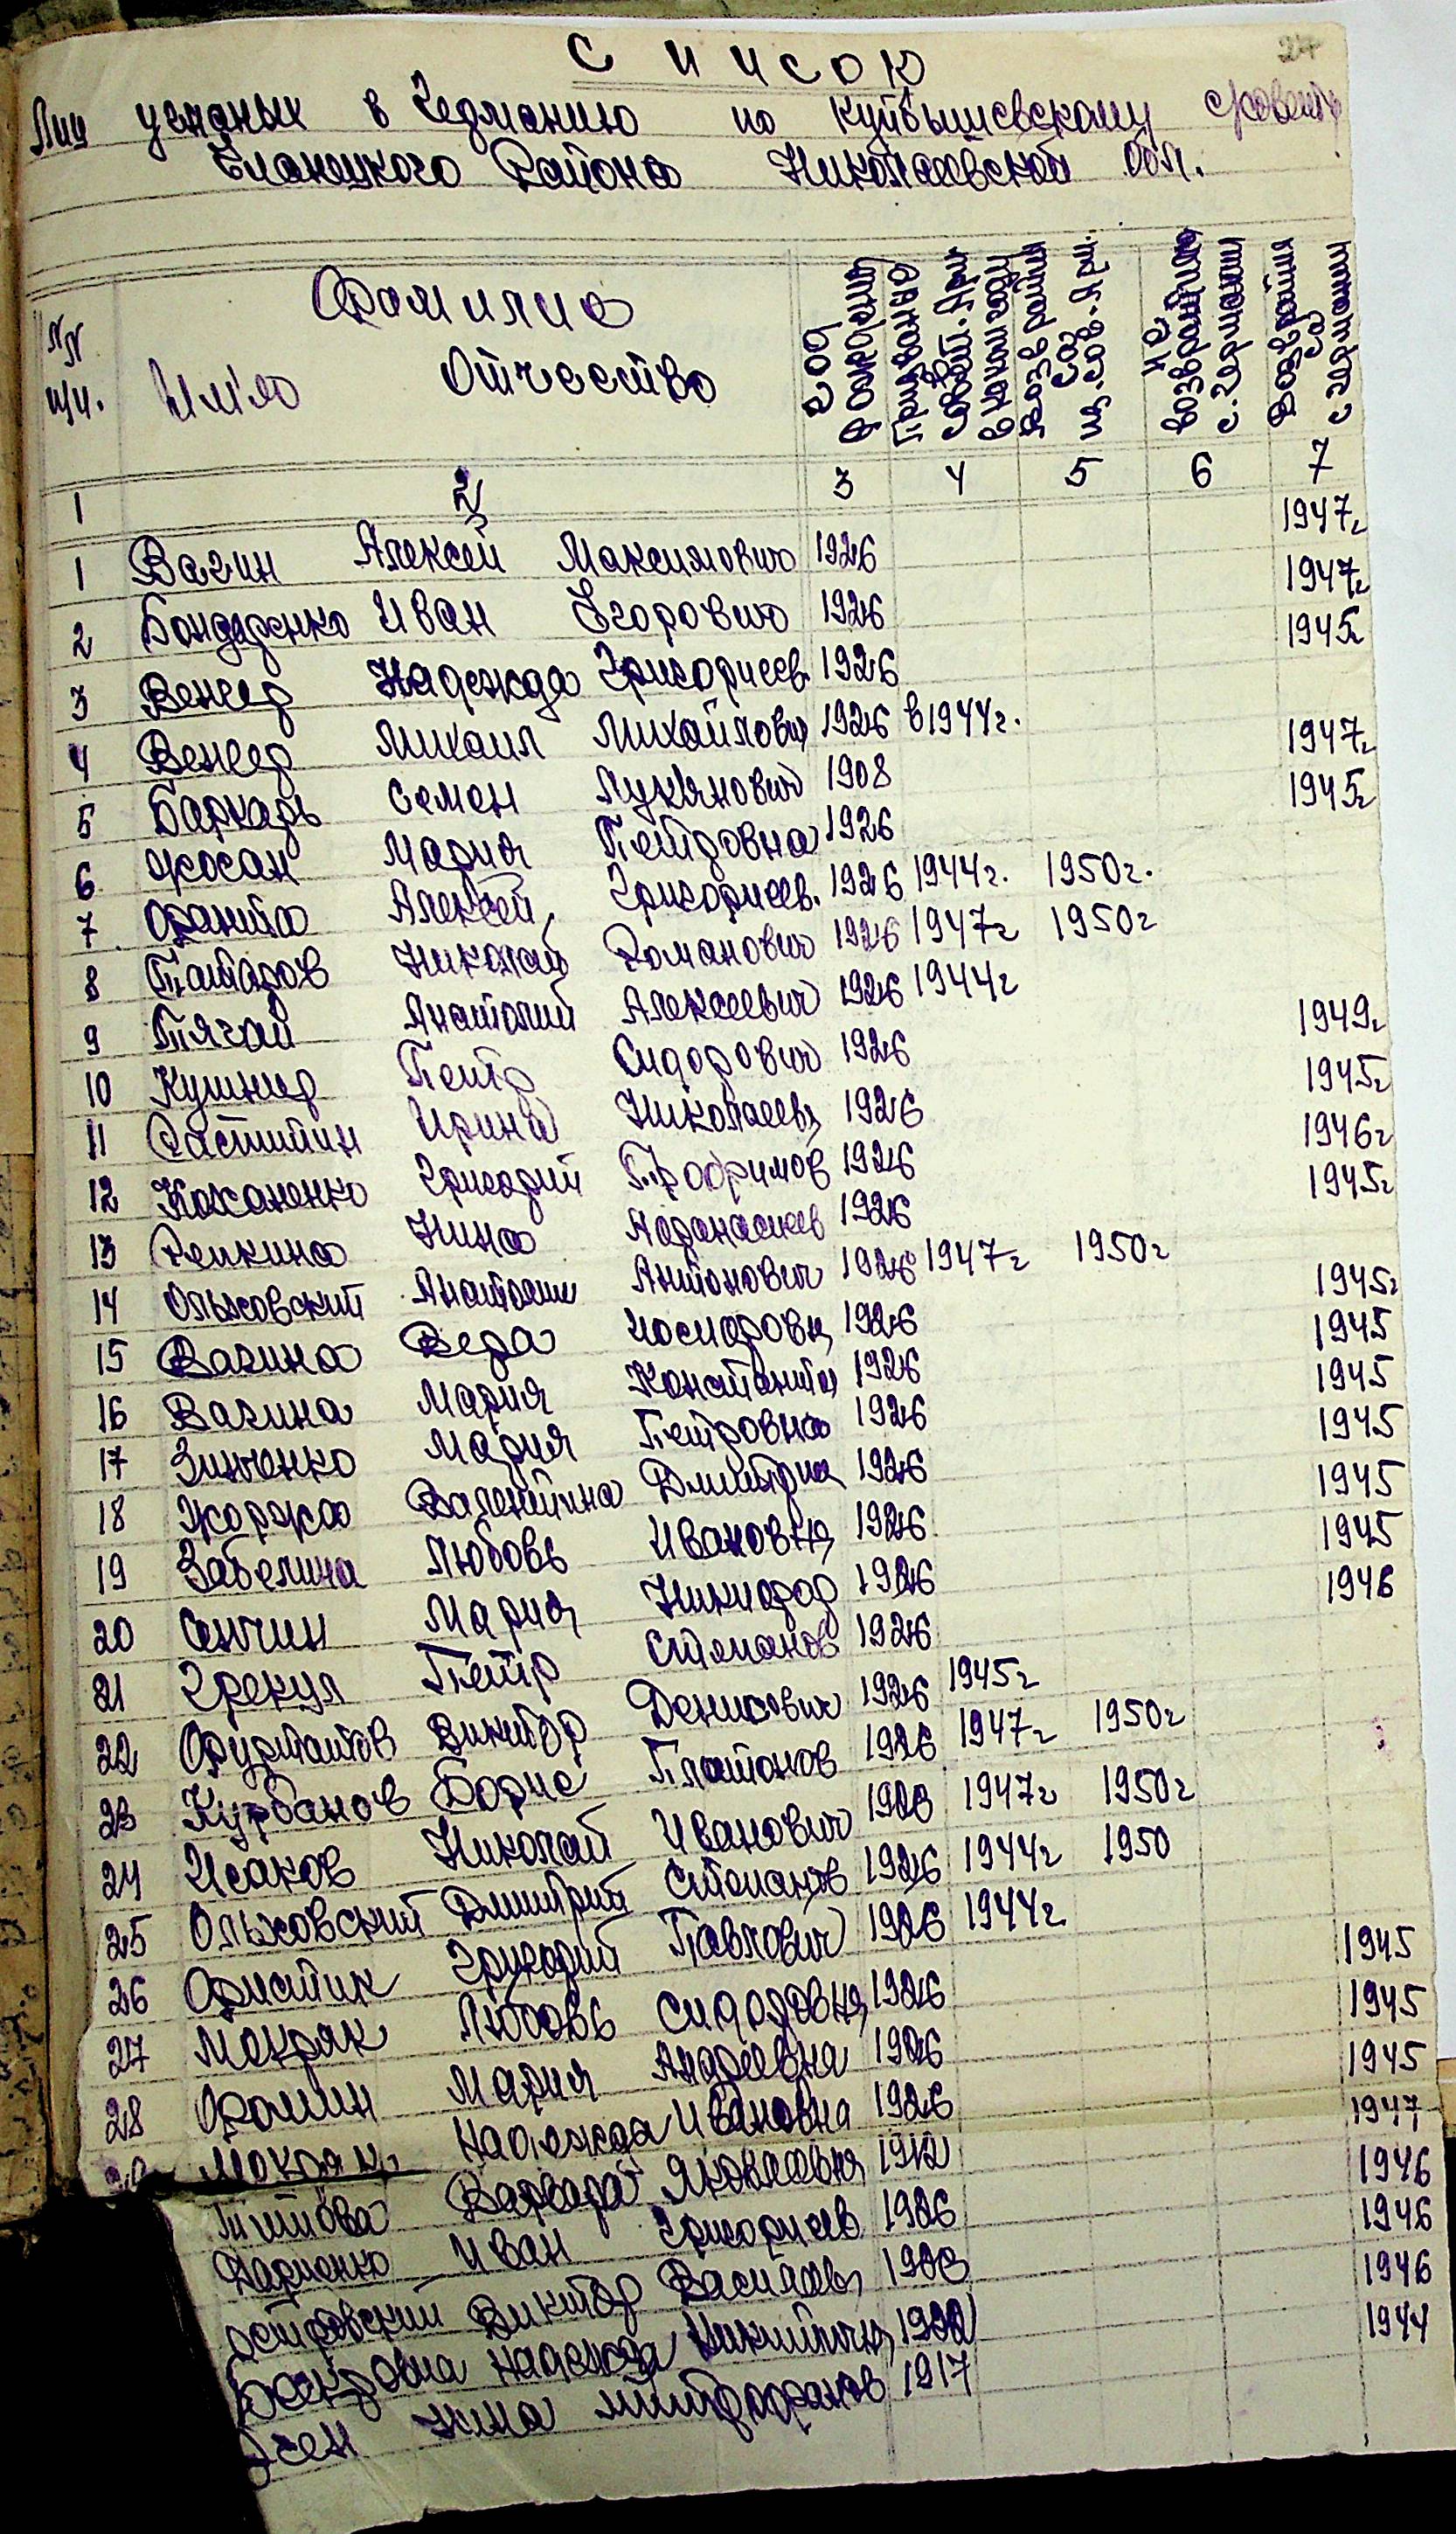 27
Список
Лиц угнаных в Германию по Куйбышевскому
Еланецкого Района Николаевской обл.
NN п/п. Фамилия Имя Отчество год рождения Призван в Совет. Арм в каком году Возвратился из Сов. Арм. не возвратился с Германии Возвратился с Германии
1 2 3 4 5 6 7
1 Вагин Алексей Максимович 1926 1947г
2 Бондаренко Иван Егорович 1926 1947г
3 Венгер Надежда Григориев. 1926 1945г
4 Венгер Михаил Михайлович 1926 в 1944г.
5 Баркарь Семен Лукянович 1908 1947г
6 Жосан Мария Петровна 1926 1945г
7 Франта Алексей Григориев. 1926 1944г. 1950г.
8 Татаров Николай Романович 1926 1947г 1950г
9 Тягай Анатолий Алексеевич 1926 1944г
10 Кушнир Петр Сидорович 1926 1949г
11 Раститин Ирина Николаевн 1926 1945г
12 Коханенко Григорий Трофимов 1926 1946г
13 Репкина Нина Афанасиев 1926 1945г
14 Ольховский Анатолии Антонович 1926 1947г 1950г
15 Вагина Вера Иосифовн 1926 1945г
16 Вагина Мария Константи 1926 1945
17 Зинченко Мария Петровна 1926 1945
18 Жоржа Валентина Дмитри 1926 1945
19 Забелина Любовь Ивановна 1926 1945
20 Сенчин Мария Никифор 1926 1945
21 Грекул Петр Степанов 1926 1946
22 Виктор Денисович 1926 1945г
23 Курбанов Борис Платонов 1926 1947г 1950г
24 Исаков Николай Иванович 1928 1947г 1950г
25 Ольховский Дмитрий Степанов 1926 1944г 1950
26 Григорий Павлович 1926 1944г
27 Мокряк Любовь Сидоровна 1926 1945
28 Фомин Мария Андреевна 1926 1945
Мокряк Надежда Ивановна 1926 1945
Титова Варвара Яковлевна 1912 1947
Иван Григориев 1926 1946
Виктор Васильев 1946
Надежда Никитичн 1946
Нина Митрофанов 1917 1944